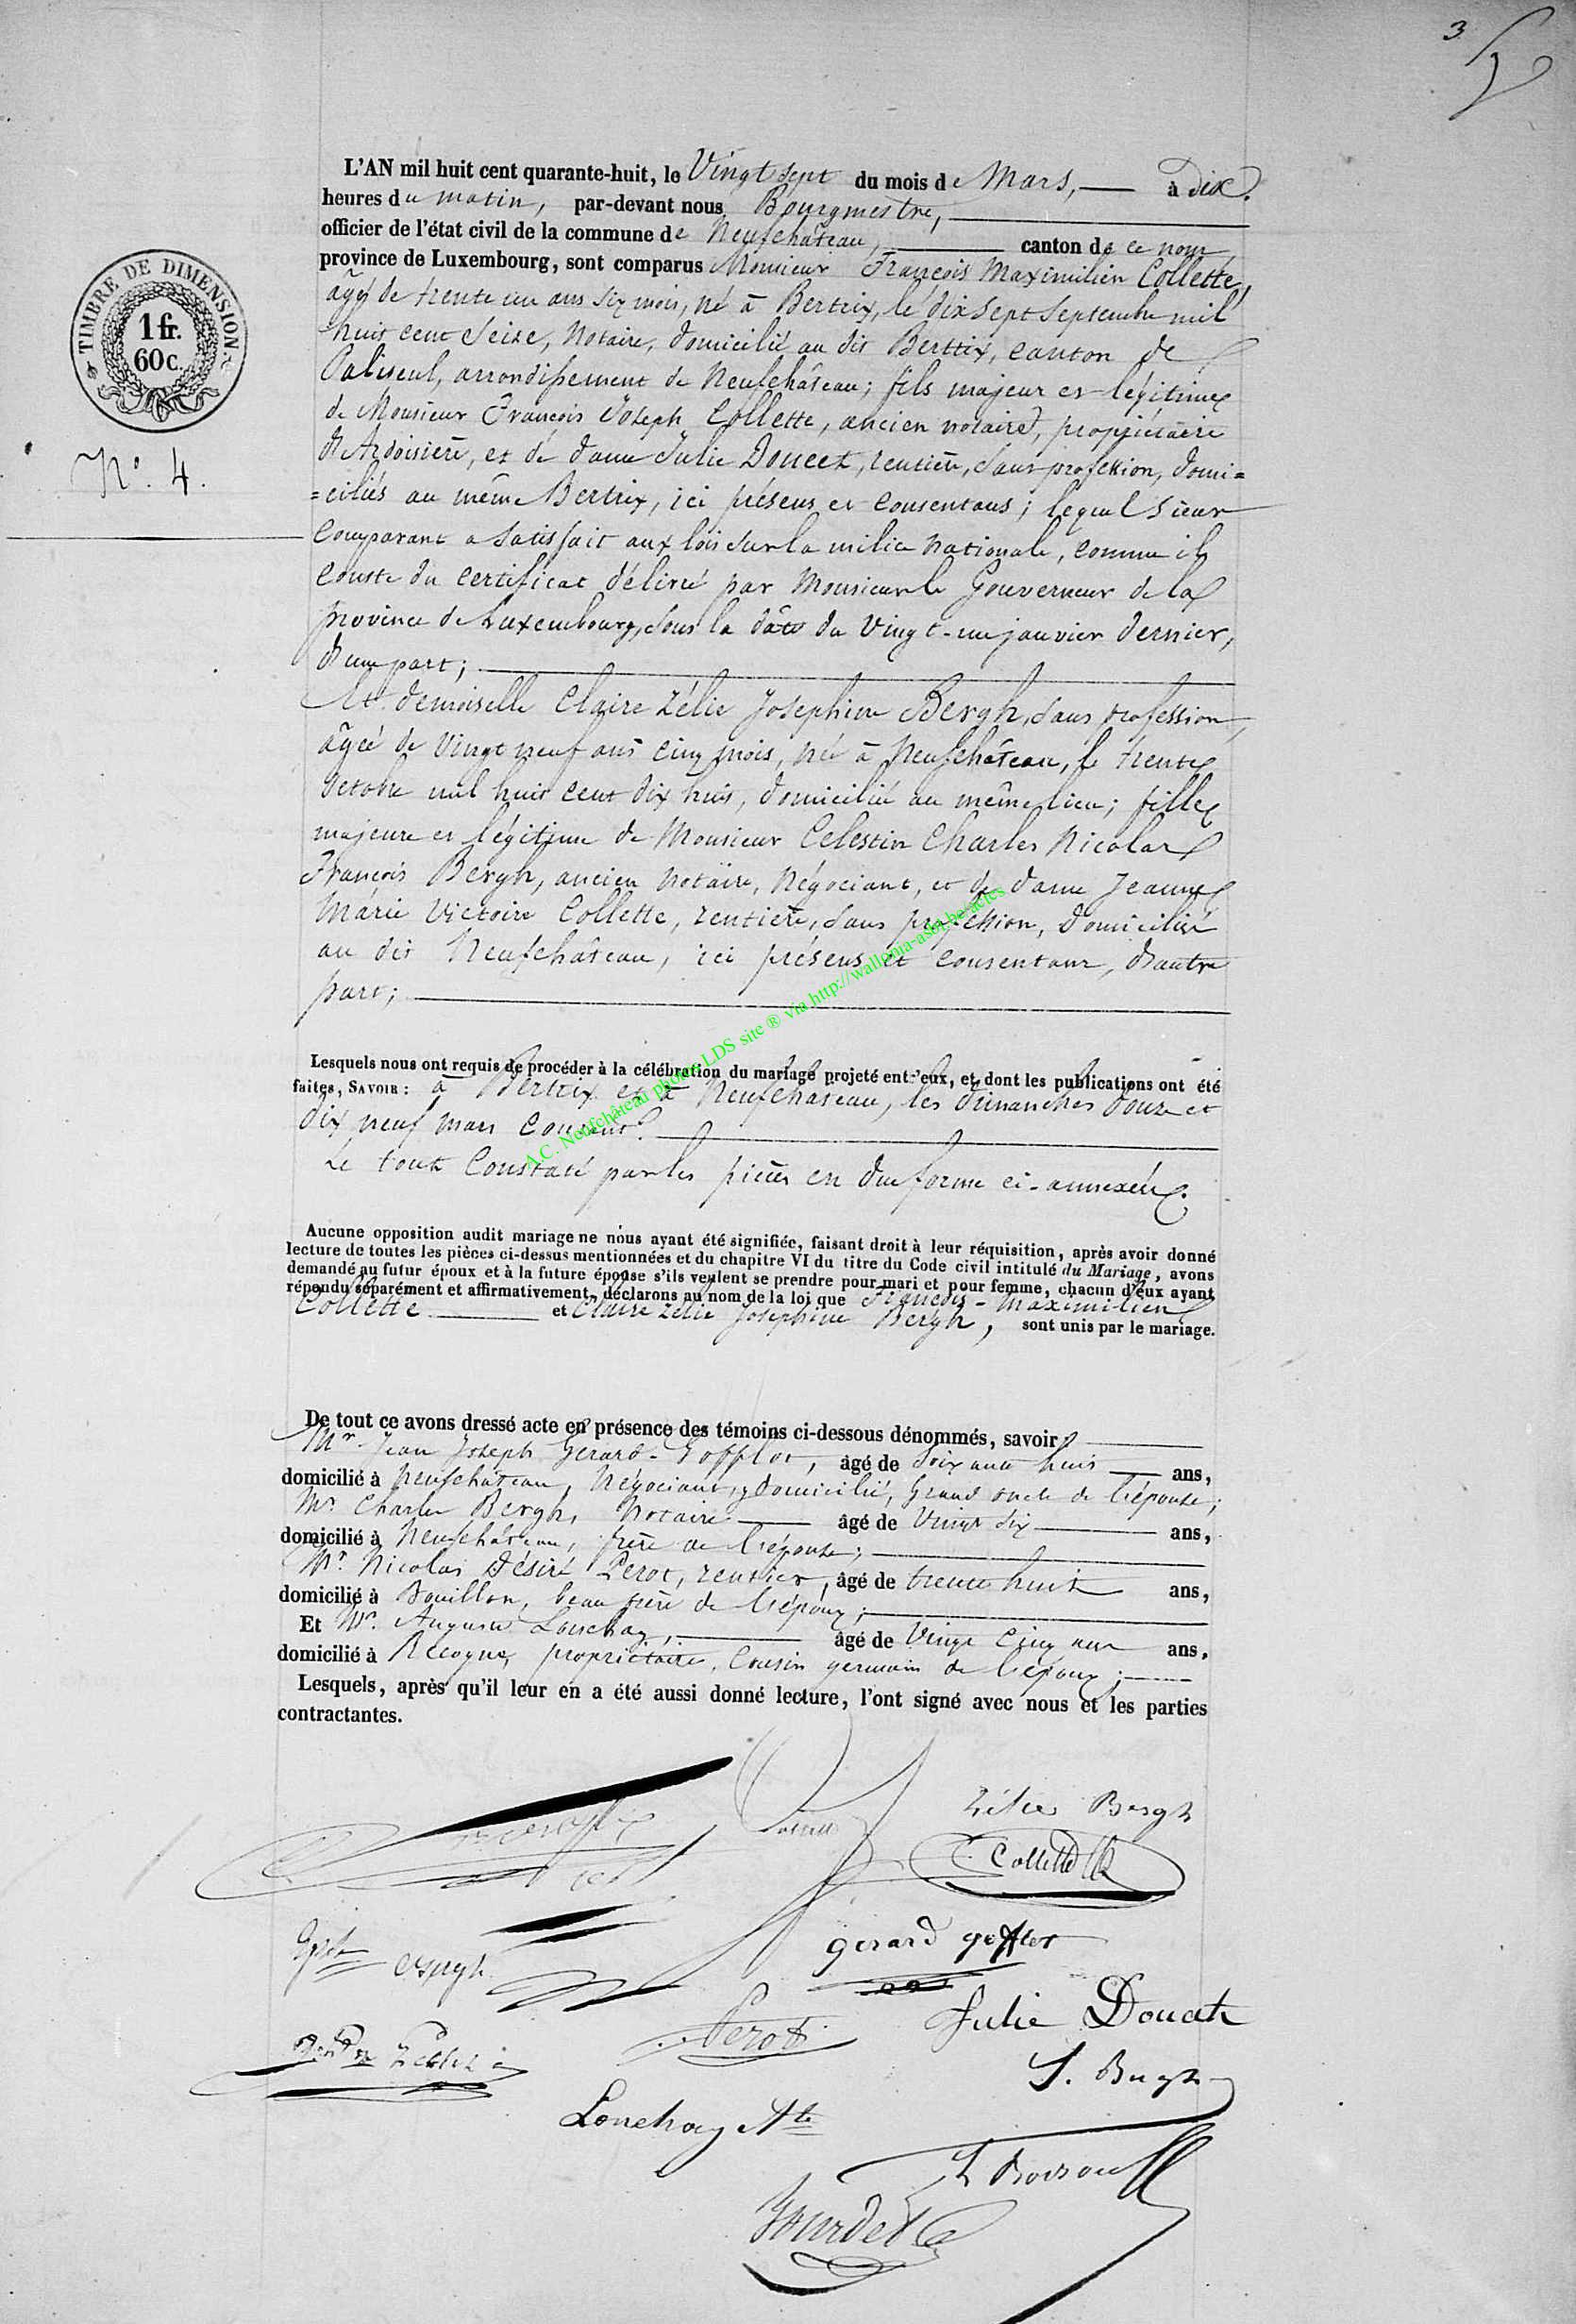 3
L'AN mil huit cent quarante-huit, le Vingt sept du mois de Mars, à dix
heures du matin, par-devant nous Bourgmestre,
officier de l'état civil de la commune de Neufchâteau, canton de ce nom
province de Luxembourg, sont comparus Monsieur François Maximilien Collette,
âgé de trente un ans six mois, né à Bertrix, le dix sept Septembre mil
huit cent Seize, Notaire, domicilié au dit Bertrix, canton de
Paliseul, arrondissement de Neufchâteau; fils majeur et légitime
de Monsieur François Joseph Collette, ancien notaire, propriétaire
d'Ardoisière, et de dame Julie Doucet, rentière, sans profession, domi=
=ciliés au même Bertrix, ici présens et consentans; lequel sieur
Comparant a satisfait aux lois sur la milice nationale, comme il
Conste du certificat délivré par Monsieur le Gouverneur de la
province de Luxembourg, sous la date du Vingt-un janvier dernier,
d'une part;
Et demoiselle Claire Zélie Josephine Bergh, sans profession,
âgée de Vingt neuf ans cinq mois, née à Neufchâteau, le trente
Octobre mil huit cent dix huit, domiciliée au même lieu; fille
majeure et légitime de Monsieur Celestin Charles Nicolas
François Bergh, ancien Notaire, Négociant, et de dame Jeanne
Marie Victoire Collette, rentière, sans profession, domiciliés
au dit Neufchâteau, ici présens et consentans, d'autre
part;
Lesquels nous ont requis de procéder à la célébration du mariage projeté entr'eux, et dont les publications ont été
faites, SAVOIR: à Bertrix et à Neufchâteau, les dimanches douze et
dix neuf mars Courant.
Le tout Constaté par les pièces en due forme ci-annexées.
Aucune opposition audit mariage ne nous ayant été signifiée, faisant droit à leur réquisition, après avoir donné
lecture de toutes les pièces ci-dessus mentionnées et du chapitre VI du titre du Code civil intitulé du Mariage, avons
demandé au futur époux et à la future épouse s'ils veulent se prendre pour mari et pour femme, chacun d'eux ayant
répondu séparément et affirmativement, déclarons au nom de la loi que François-Maximilien
Collette et Claire Zélie Josephine Bergh, sont unis par le mariage.
De tout ce avons dressé acte en présence des témoins ci-dessous dénommés, savoir:
Mr. Jean Joseph Gérard-Gofflot, âgé de Soixante huit ans,
domicilié à Neufchâteau, Négociant, y domicilié, Grand oncle de l'épouse;
Mr. Charles Bergh, Notaire âgé de Vingt six ans,
domicilié à Neufchâteau, frère de l'épouse;
Mr. Nicolas Désiré Perot, rentier, âgé de trente huit ans,
domicilié à Bouillon, beau frère de l'époux;
Et Mr. Auguste Lonchay, âgé de Vingt Cinq ans ans,
domicilié à Recogne, propriétaire, Cousin germain de l'époux;
Lesquels, après qu'il leur en a été aussi donné lecture, l'ont signé avec nous et les parties
contractantes.
TIMBRE DE DIMENSION
1 fr.
60 c.
N°. 4.
Zélie Bergh
Collette
gérard gofflot
Julie Doucet
Perot
Lonchay Ate
Jourdet
A.C. Neufchâteau photos LDS site ® via http://wallonia-asbl.be-actes